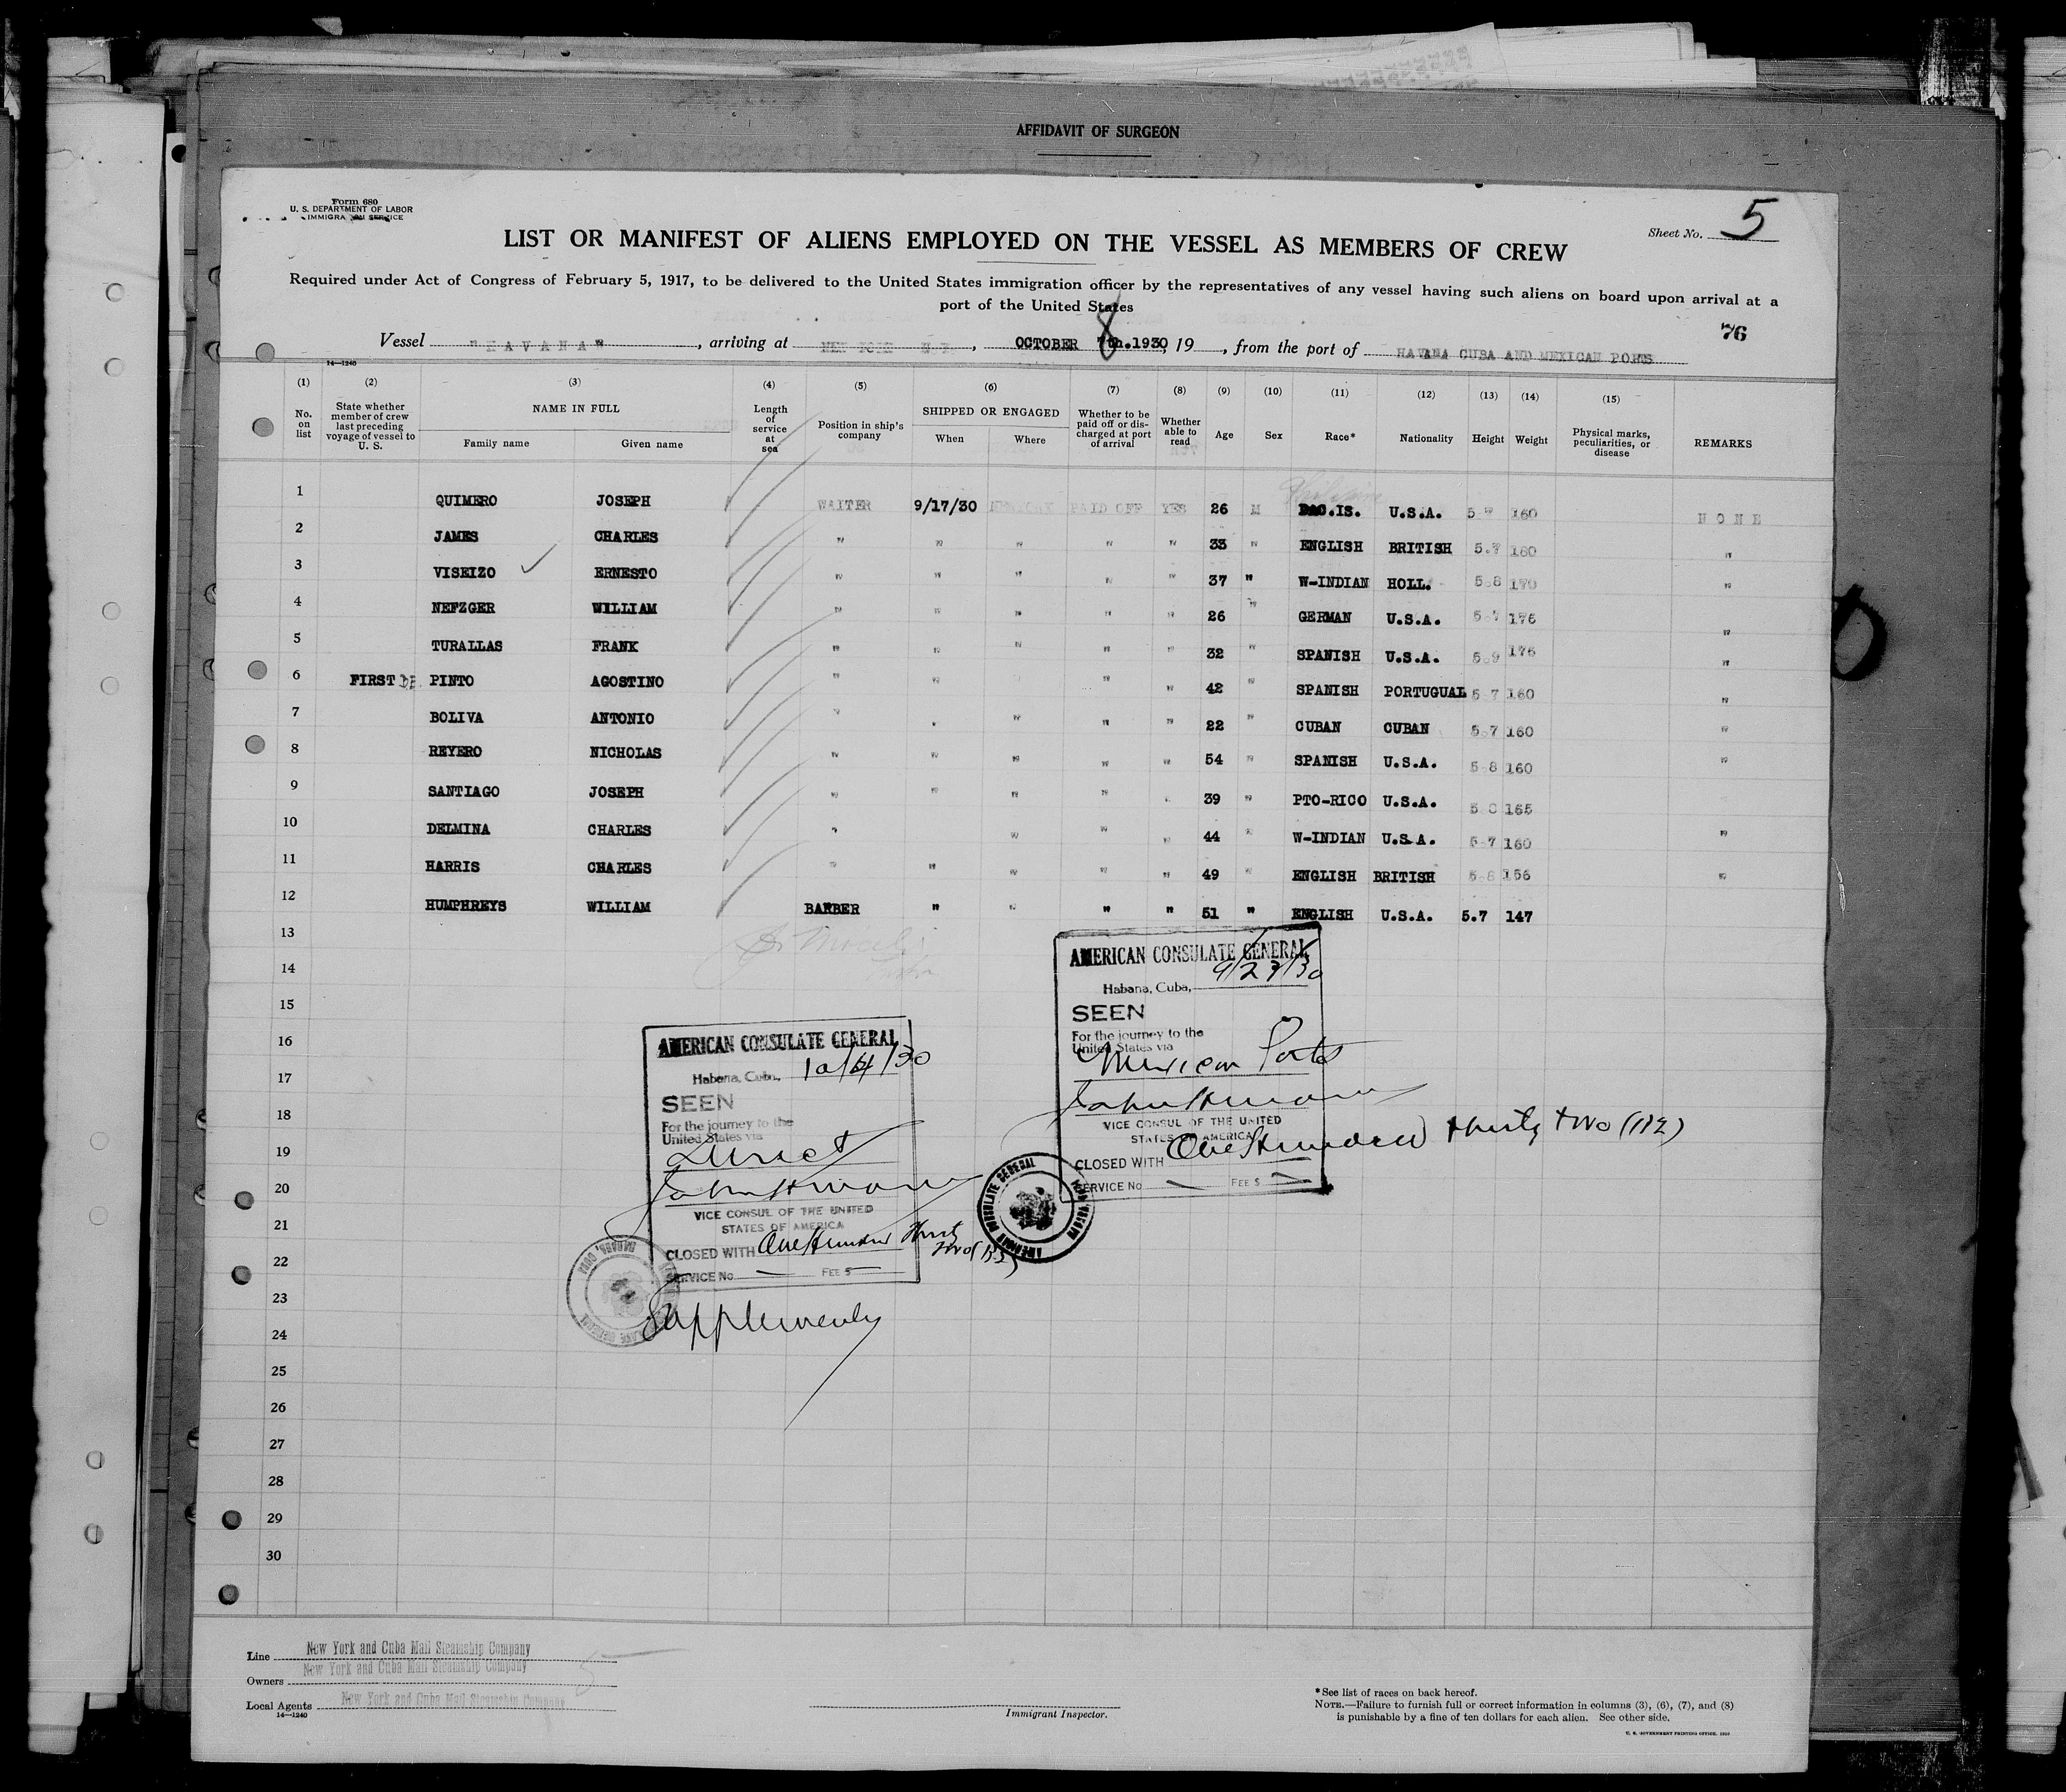 AFFIDAVIT OF SURGEON
Form 680
U. S. DEPARTMENT OF LABOR
IMMIGRATION SERVICE
Sheet No. 5
LIST OR MANIFEST OF ALIENS EMPLOYED ON THE VESSEL AS MEMBERS OF CREW
Required under Act of Congress of February 5, 1917, to be delivered to the United States immigration officer by the representatives of any vessel having such aliens on board upon arrival at a
port of the United States
76
Vessel "HAVANA", arriving at NEW YORK N.Y., OCTOBER 7th.1930, 19 , from the port of HAVANA CUBA AND MEXICAN PORTS
8
14—1240
(1) (2) (3) (4) (5) (6) (7) (8) (9) (10) (11) (12) (13) (14) (15)
No. on list State whether member of crew last preceding voyage of vessel to U. S. NAME IN FULL Family name Given name Length of service at sea Position in ship's company SHIPPED OR ENGAGED When Where Whether to be paid off or discharged at port of arrival Whether able to read Age Sex Race* Nationality Height Weight Physical marks, peculiarities, or disease REMARKS
Philippine
1 QUIMERO JOSEPH WAITER 9/17/30 NEWYORK PAID OFF YES 26 M PAC.IS. U.S.A. 5 7 160 NONE
2 JAMES CHARLES " " " " " 33 " ENGLISH BRITISH 5.7 160 "
3 VISEIZO ERNESTO " " " " " 37 " W-INDIAN HOLL. 5.8 170 "
4 NEFZGER WILLIAM " " " " " 26 " GERMAN U.S.A. 5 7 176 "
5 TURALLAS FRANK " " " " " 32 " SPANISH U.S.A. 5.9 176 "
6 FIRST PINTO AGOSTINO " " " " 42 " SPANISH PORTUGUAL 5 7 160 "
7 BOLIVA ANTONIO " " " " " 22 " CUBAN CUBAN 5.7 160 "
8 REYERO NICHOLAS " " " " " 54 " SPANISH U.S.A. 5 8 160 "
9 SANTIAGO JOSEPH " " " " " 39 " PTO-RICO U.S.A. 165
10 DELMINA CHARLES " " " " 44 " W-INDIAN U.S.A. 5 7 160 "
11 HARRIS CHARLES " " " " " 49 " ENGLISH BRITISH 5 8 156 "
12 HUMPHREYS WILLIAM BARBER " " " " 51 " ENGLISH U.S.A. 5.7 147
13
14
15
16
17
18
19
20
21
22
23
24
25
26
27
28
29
30
AMERICAN CONSULATE GENERAL
Habana, Cuba, 9/27/30
SEEN
For the journey to the
United States via
Mexican Ports
VICE CONSUL OF THE UNITED
STATES OF AMERICA
CLOSED WITH One Hundred thirty two (132)
SERVICE No FEE $
AMERICAN CONSULATE GENERAL
Habana, Cuba, 10/4/30
SEEN
For the journey to the
United States via
Direct
VICE CONSUL OF THE UNITED
STATES OF AMERICA
CLOSED WITH One Hundred Thirty
Two (132)
SERVICE No FEE $
Supplementy
AMERICAN CONSULATE GENERAL HABANA, CUBA
Line New York and Cuba Mail Steamship Company
Owners New York and Cuba Mail Steamship Company
Local Agents New York and Cuba Mail Steamship Company
5
14—1240
Immigrant Inspector.
*See list of races on back hereof.
NOTE.—Failure to furnish full or correct information in columns (3), (6), (7), and (8)
is punishable by a fine of ten dollars for each alien. See other side.
U. S. GOVERNMENT PRINTING OFFICE